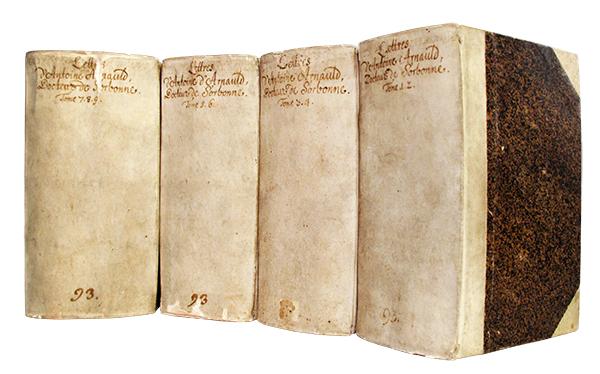 Lettres
D'Antoine Arnauld,
Docteur de Sorbonne.
Tome 7.8.9.
93.
Lettres
D'Antoine d'Arnauld,
Docteur de Sorbonne.
Tome 5.6.
93
Lettres
D'Antoine Arnauld,
Docteur de Sorbonne.
Tome 3.4.
Lettres
D'Antoine Arnauld,
Docteur de Sorbonne.
Tome 1.2.
93.